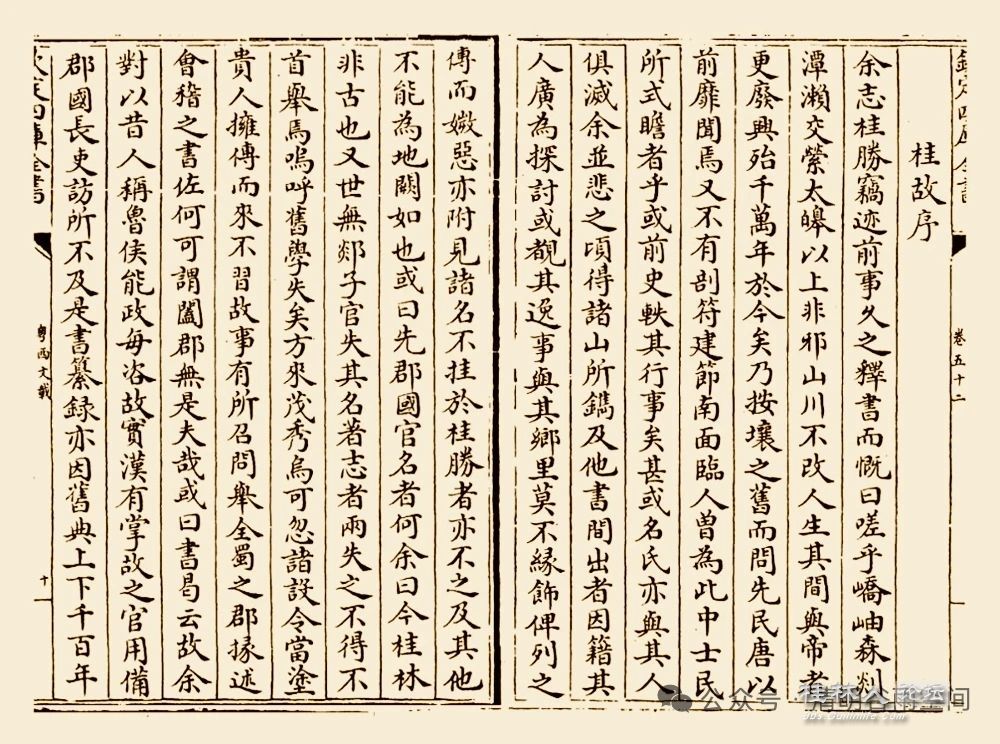 桂故序
余志桂勝竊迹前事久之釋書而慨曰嗟乎嶠岫森列
潭瀨交縈太皞以上非邪山川不改人生其間與帝者
更廢興殆千萬年於今矣乃按壤之舊而問先民唐以
前靡聞焉又不有剖符建節南面臨人曾為此中士民
所式瞻者乎或前史軼其行事矣甚或名氏亦與其人
俱滅余並悲之頃得諸山所鐫及他書間出者因籍其
人廣為探討或覩其逸事與其鄉里莫不緣飾俾列之
卷五十二
傳而媺惡亦附見諸名不挂於桂勝者亦不之及其他
不能為地闕如也或曰先郡國官名者何余曰今桂林
非古也又世無郯子官失其名著志者兩失之不得不
首舉焉嗚呼舊學失矣方來茂秀烏可忽諸設令當塗
貴人擁傳而來不習故事有所召問舉全蜀之郡掾述
會稽之書佐何可謂闔郡無是夫哉或曰書曷云故余
對以昔人稱魯侯能政每咨故實漢有掌故之官用備
郡國長吏訪所不及是書纂録亦因舊典上下千百年
粤西文載
十一
公众号
桂林论坛
bbs.Guilinlife.com